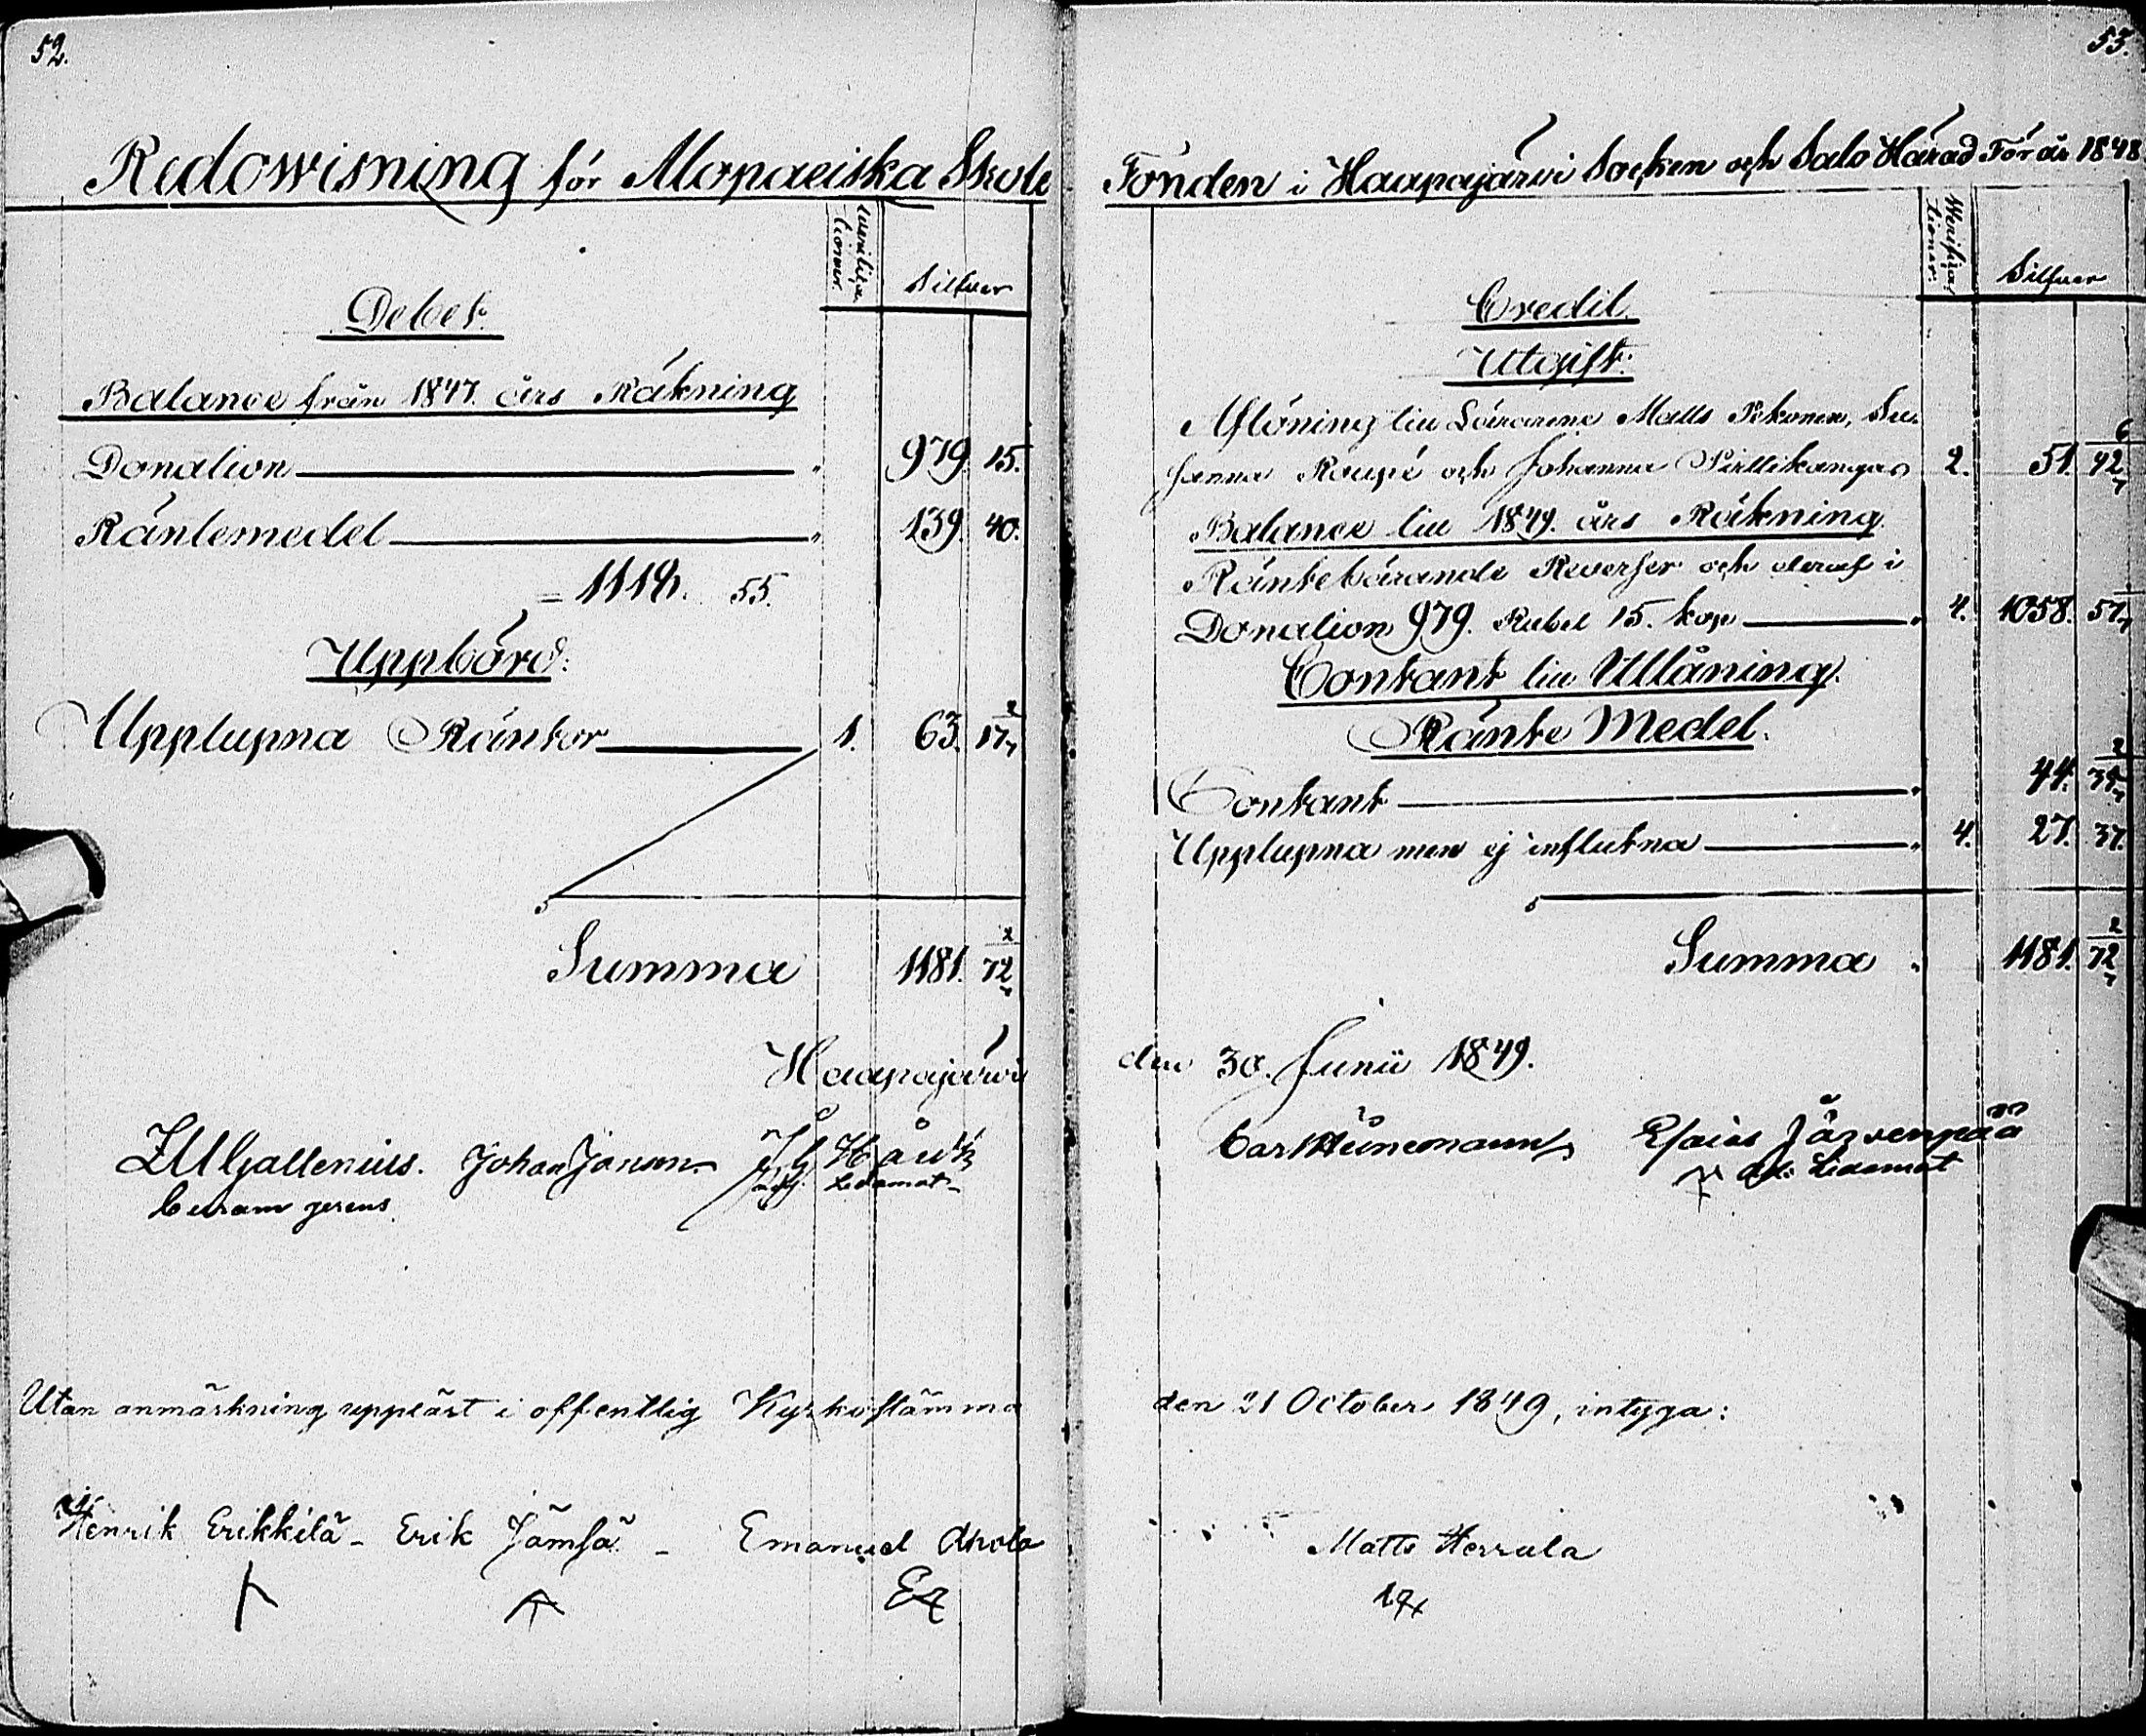 52.
Redowisning för Mopaeiska Skole
Werifica
tioner.
Silfver
Debet.
Balance från 1847. års Räkning
Donation 979. 15.
Räntemedel 139. 40.
= 1118. 55.
Uppbörd:
Upplupna Räntor 1. 63. 17 2/7
Summa 1181. 72 2/7
Haapajärvi
Johan Jonson
Curam gerens
Ledamot
Utan anmärkning uppläst i offentlig Kyrkostämma
Henrik Erikkilä - Erik Jämsä - Emanuel Ahola
53.
Fonden i Haapajärvi Socken och Salo Härad För år 1848
Werifica
tioner.
Silfver
Credit.
Utgift.
Aflöning till Lärarene Matts Pekonen, Su-
sanna Roupé och Johanna Pirttikangas 2. 51. 42 6/7
Balance till 1849. års Räkning
Räntebärande Reverser och deraf i
Donation 979. Rubel 15. kop 4. 1058. 57 1/7
Contant till Utlåning.
Ränte Medel.
Contant 44. 34 2/7
Upplupna men ej influtna 4. 27. 37.
Summa 1181. 72 2/7
den 30. Junii 1849.
Esaias Järvenpää
Ledamot
den 21 October 1849, intyga:
Matts Herrala